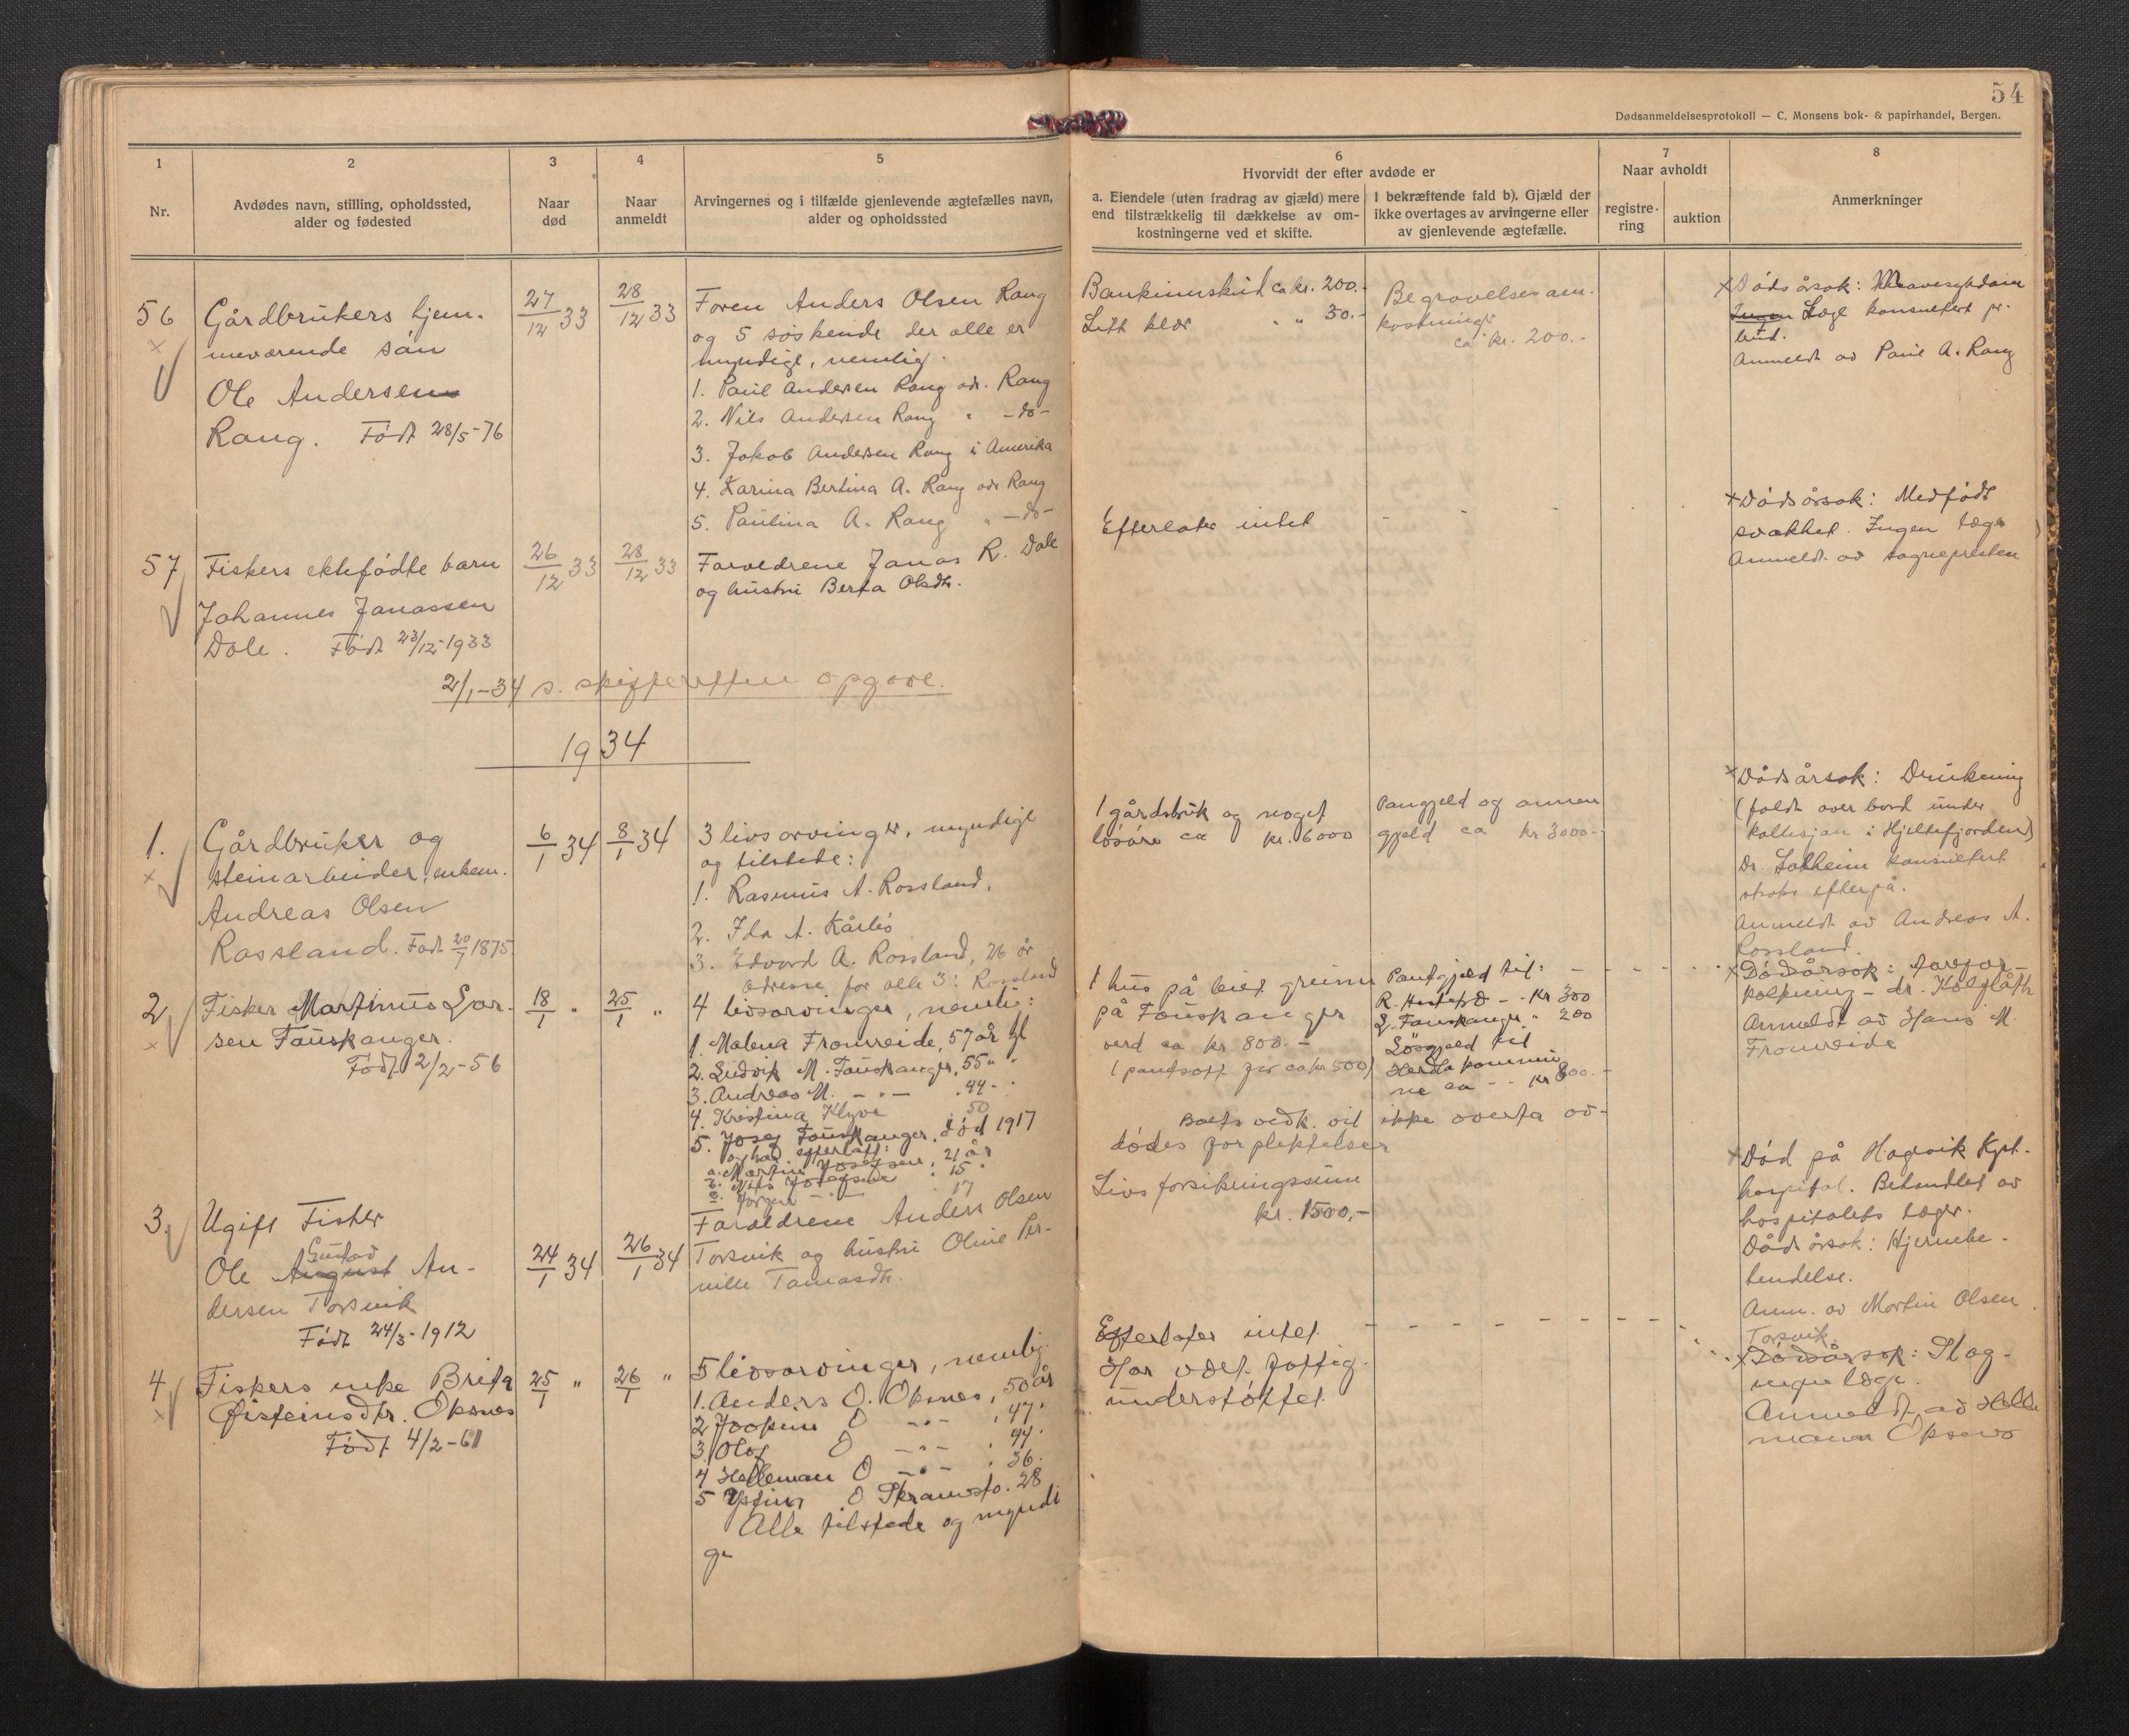 54
Dødsanmeldelsesprotokoll — C. Monsens bok- & papirhandel, Bergen.
1
Nr.
2
Avdødes navn, stilling, opholdssted,
alder og fødested
3
Naar
død
4
Naar
anmeldt
5
Arvingernes og i tilfælde gjenlevende ægtefælles navn,
alder og opholdssted
6
Hvorvidt der efter avdøde er
a. Eiendele (uten fradrag av gjæld) mere
end tilstrækkelig til dækkelse av om-
kostningerne ved et skifte.
I bekræftende fald b). Gjæld der
ikke overtages av arvingerne eller
av gjenlevende ægtefælle.
7
Naar avholdt
registre-
ring
auktion
8
Anmerkninger
56
Gårdbrukers hjem-
meværende søn
Ole Andersen
Rong. Født 28/5-76
27/12 33
28/12 33
Faren Anders Olsen Rong
og 5 søskende der alle er
myndige, nemlig:
1. Paul Andersen Rong adr. Rong
2. Nils Andersen Rong " -do-
3. Jakob Andersen Rong i Amerika
4. Karina Bertina A. Rong adr Rong
5. Paulina A. Rong " -do-
Bankinnskud ca kr. 200.-
Litt klær " " 30.-
Begravelsesom-
kostninger
ca kr. 200.-
Dødsårsak: Mavesykdom
Ingen Læge konsultert pr.
bud.
Anmeldt av Paul A. Rong
57
Fiskers ektefødte barn
Johannes Jonassen
Dale. Født 23/12-1933
26/12 33
28/12 33
Foreldrene Jonas R. Dale
og hustru Berta Olsdtr.
Efterlater intet
Dødsårsak: Medfødt
svakhet. Ingen læge
Anmeldt av sognepresten
2/1-34 s. skifteretten opgave.
1934
1.
Gårdbruker og
steinarbeider, enkem.
Andreas Olsen
Rossland. Født 20/7 1875
6/1 34
8/1 34
3 livsarvinger, myndige
og tilstede:
1. Rasmus A. Rossland,
2. Ida A. Kårbø
3. Edvard A. Rossland, 26 år
adresse for alle 3: Rossland
1 gårdsbruk og noget
løsøre ca kr. 6000
Pangjeld og annen
gjeld ca kr 3000-
Dødsårsak: Drukning
(faldt over bord under
kollisjon i Hjeltefjorden)
Dr. Solheim konsultert
straks efterpå.
Anmeldt av Andreas A.
Rossland.
2
Fisker Martinus Lar-
sen Fauskanger.
Født 2/2-56
18/1 "
25/1 "
4 livsarvinger, nemlig:
1. Malena Fromreide, 57 år gl
2. Ludvik M. Fauskanger, 55 " "
3. Andreas M. -"- " 44 "
4. Kristina Klyve 50
5. Josef Fauskanger, død 1917
og har efterlatt:
a. Martin Josefsen, 21 år
b. Nils Josefsen " 15 "
c. Jørgen -"- " 17
1 hus på leiet grunn
på Fauskanger
verd ca kr. 800.-
(pantsatt for ca kr 500)
Pantgjeld til:
R. Hestefd -- kr 300
L. Fauskanger " 200
Løsgjeld til
Herdla kommu
ne ca -- kr 800.-
Boets vedk. vil ikke overta av-
dødes forpliktelser
Dødsårsak: åreror-
kalkning - dr. Kolflåth
Anmeldt av Hans M.
Fromreide
3.
Ugift Fisker
Gustav
Ole August An-
dersen Torsvik
Født 24/3-1912
24/1 34
26/1 34
Foreldrene Anders Olsen
Torsvik og hustru Oline Per-
nille Tomasdtr.
Livsforsikringssum
kr. 1500,-
Død på Hagevik Kyst-
hospital. Behandlet av
hospitalets læger.
Dødsårsak: Hjernebe-
tendelse.
Anm. av Martin Olsen
Torsvik.
4
Fiskers enke Brita
Øisteinsdtr. Oksnes
Født 4/2-61
25/1 "
26/1 "
5 livsarvinger, nemlig:
1. Anders O. Oksnes, 50 år
2 Joakim O -"- , 47 "
3 Olaf O -"- " 44 "
4 Halleman O -"- " 36 "
5 O Skramsto. 28
Alle tilstede og myndi
ge
Efterlater intet.
Har vært fattig-
understøttet.
Dødsårsak: Slag-
ingen læge.
Anmeldt av Halle
mann Oksnes